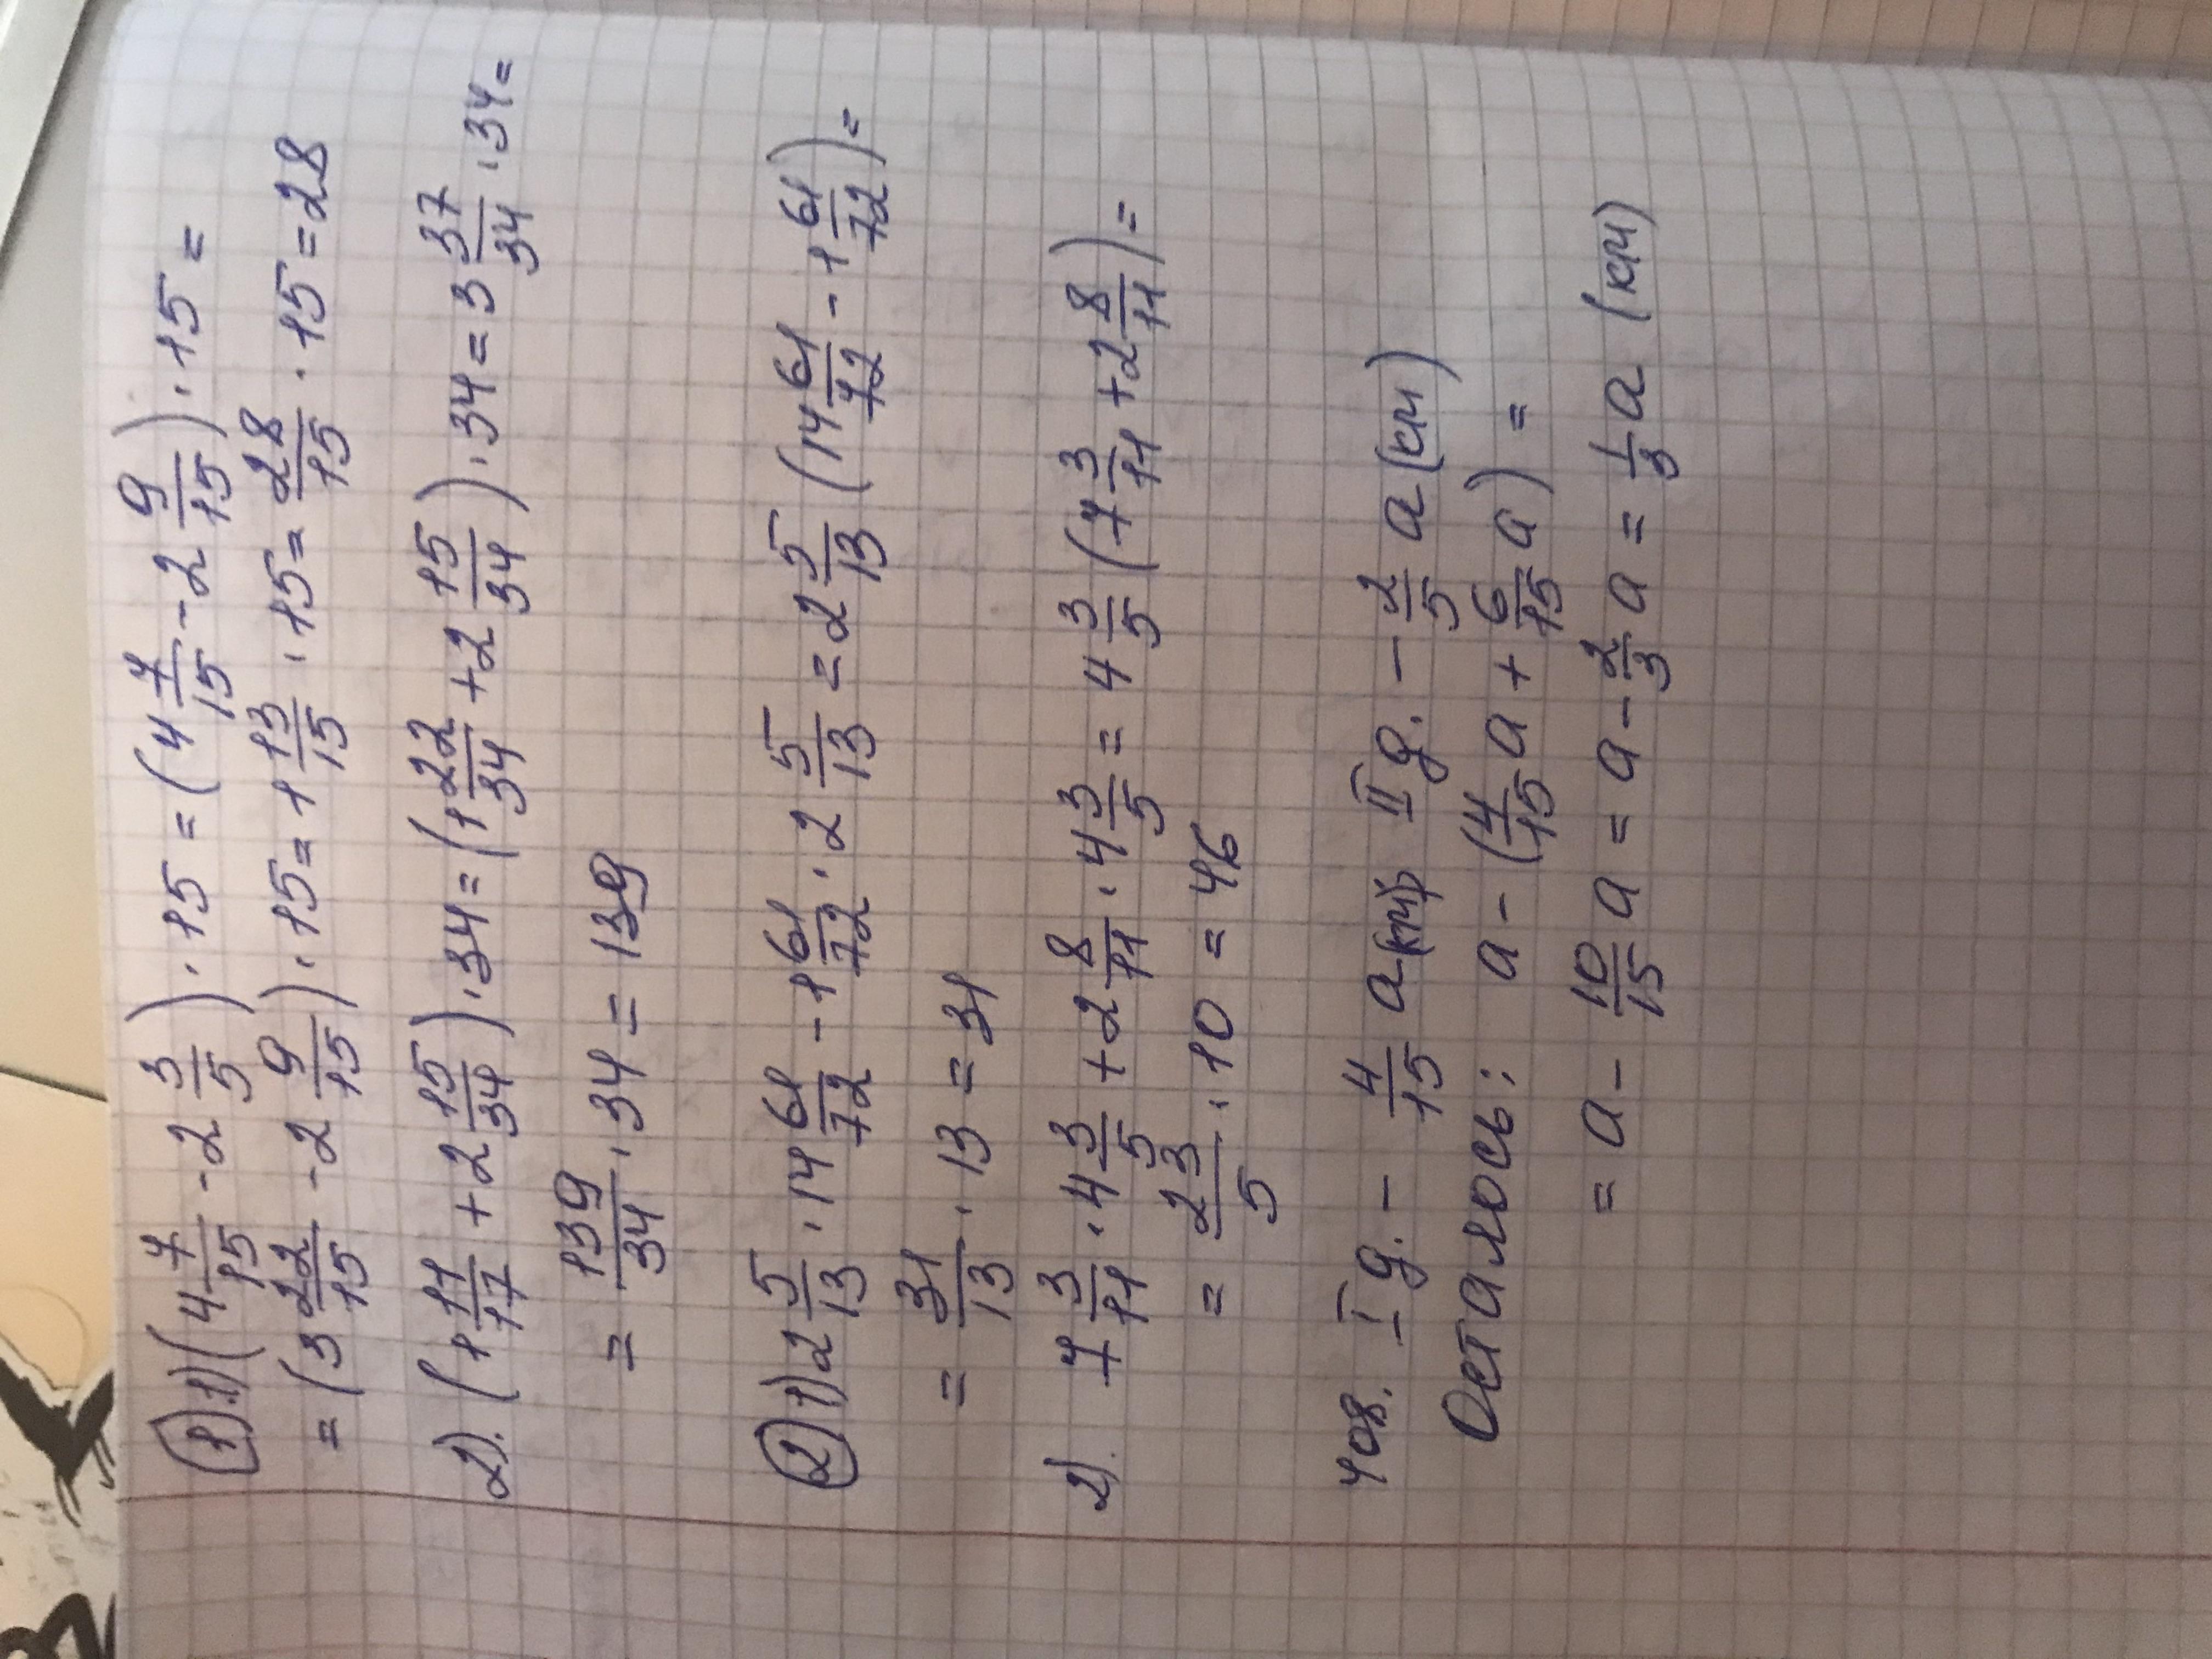 ①.1) (4 7/15 - 2 3/5) · 15 = (4 7/15 - 2 9/15) · 15 =
= (3 22/15 - 2 9/15) · 15 = 1 13/15 · 15 = 28/15 · 15 = 28
2). (1 11/17 + 2 15/34) · 34 = (1 22/34 + 2 15/34) · 34 = 3 37/34 · 34 =
= 139/34 · 34 = 139
② 1) 2 5/13 · 14 61/72 - 1 61/72 · 2 5/13 = 2 5/13 (14 61/72 - 1 61/72) =
= 31/13 · 13 = 31
2). 7 3/11 · 4 3/5 + 2 8/11 · 4 3/5 = 4 3/5 (7 3/11 + 2 8/11) =
= 23/5 · 10 = 46
408. I д. - 4/15 a (км) II д. - 2/5 a (км)
Осталось: a - (4/15 a + 6/15 a) =
= a - 10/15 a = a - 2/3 a = 1/3 a (км)